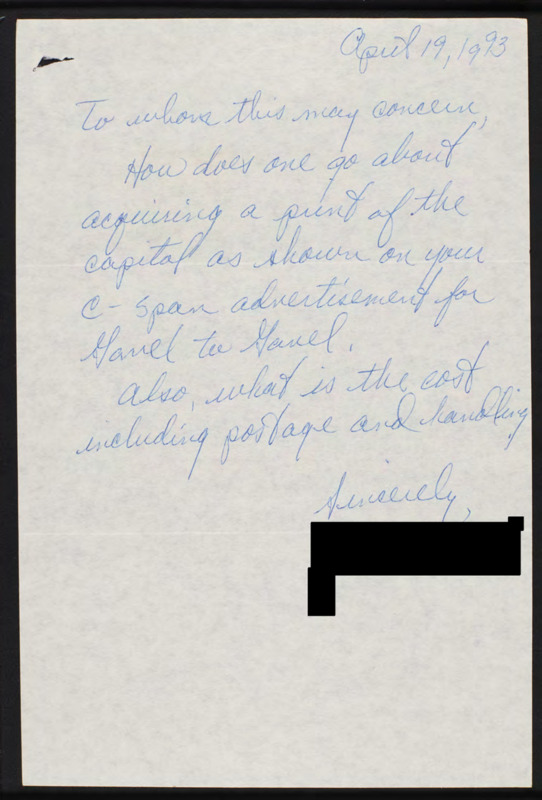 April 19, 1993
To whom this may concern,
How does one go about
acquiring a print of the
capital as shown on your
C-Span advertisement for
Gavel to Gavel.
Also, what is the cost
including postage and handling
Sincerely,